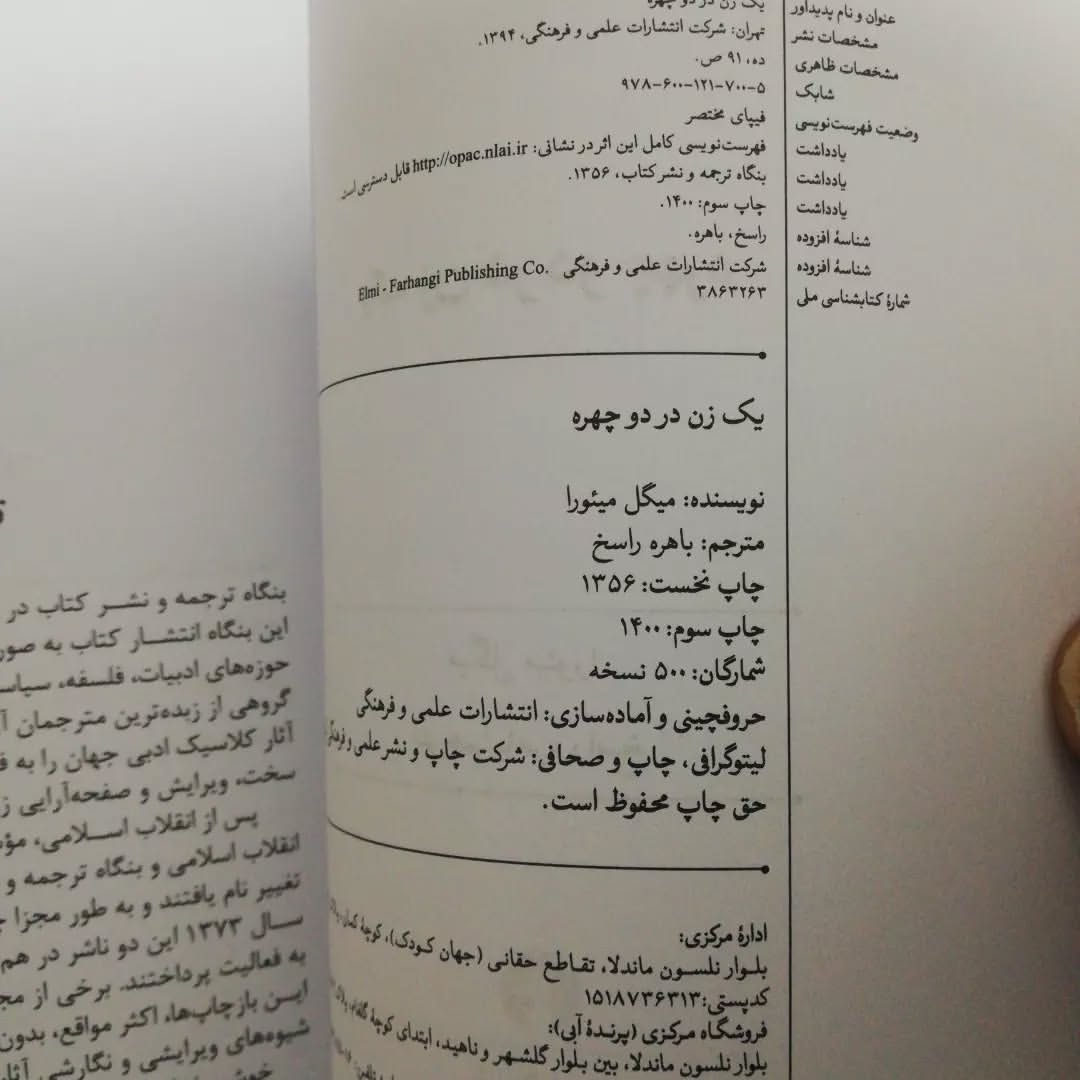 عنوان و نام پدیدآور یک زن در دو چهره
مشخصات نشر تهران: شرکت انتشارات علمی و فرهنگی، ۱۳۹۴.
مشخصات ظاهری ده، ۹۱ ص.
شابک ۹۷۸-۶۰۰-۱۲۱-۷۰۰-۵
وضعیت فهرست‌نویسی فیپای مختصر
یادداشت فهرست‌نویسی کامل این اثر در نشانی: http://opac.nlai.ir قابل دسترسی است
یادداشت بنگاه ترجمه و نشر کتاب، ۱۳۵۶.
یادداشت چاپ سوم: ۱۴۰۰.
شناسهٔ افزوده راسخ، باهره.
شناسهٔ افزوده شرکت انتشارات علمی و فرهنگی Elmi - Farhangi Publishing Co.
شمارهٔ کتابشناسی ملی ۳۸۶۳۲۶۳
یک زن در دو چهره
نویسنده: میگل میئورا
مترجم: باهره راسخ
چاپ نخست: ۱۳۵۶
چاپ سوم: ۱۴۰۰
شمارگان: ۵۰۰ نسخه
حروفچینی و آماده‌سازی: انتشارات علمی و فرهنگی
لیتوگرافی، چاپ و صحافی: شرکت چاپ و نشر علمی و فرهنگی
حق چاپ محفوظ است.
ادارهٔ مرکزی:
بلوار نلسون ماندلا، تقاطع حقانی (جهان کودک)، کوچهٔ کمان،
کدپستی: ۱۵۱۸۷۳۶۳۱۳
فروشگاه مرکزی (پرندهٔ آبی):
بلوار نلسون ماندلا، بین بلوار گلشهر و ناهید، ابتدای کوچهٔ گلفام،
بنگاه ترجمه و نشر کتاب در
این بنگاه انتشار کتاب به
حوزه‌های ادبیات، فلسفه،
گروهی از زبده‌ترین مترجمان
آثار کلاسیک ادبی جهان را به
سخت، ویرایش و صفحه‌آرایی
پس از انقلاب اسلامی،
انقلاب اسلامی و بنگاه ترجمه و
تغییر نام یافتند و به طور مجزا
سال ۱۳۷۳ این دو ناشر در هم
به فعالیت پرداختند. برخی از
این بازچاپ‌ها، اکثر مواقع، بدون
شیوه‌های ویرایشی و نگارشی